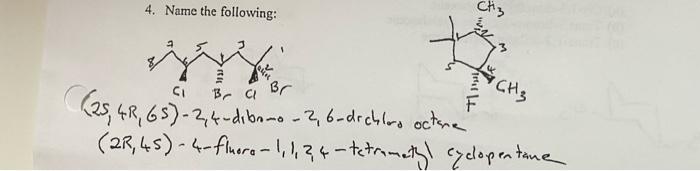 4. Name the following:
CH3
8 7 5 3 1
2
2
3
5 4
CH3
F
Cl Br Cl Br
(2S, 4R, 6S)-2,4-dibromo-2,6-dichloro octane
(2R, 4S)-4-fluoro-1,1,2,4-tetramethyl cyclopentane